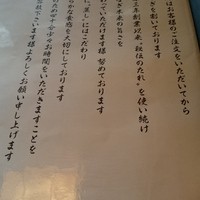 はお客様のご注文をいただいてから
ぎを割いております
三年創業以来、"秘伝のたれ"を使い続け
ぎ本来の旨さを
っていただけます様 努めております
に、蒸し にはこだわり
やかな食感を大切にしております
の為四十分少々お時間をいただきますことを
承下さいます様よろしくお願い申し上げます